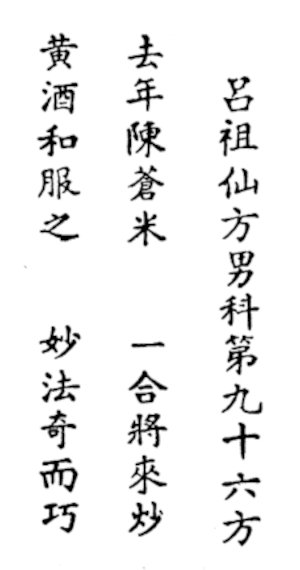 呂祖仙方男科第九十六方
去年陳蒼米　一合將來炒
黃酒和服之　妙法奇而巧